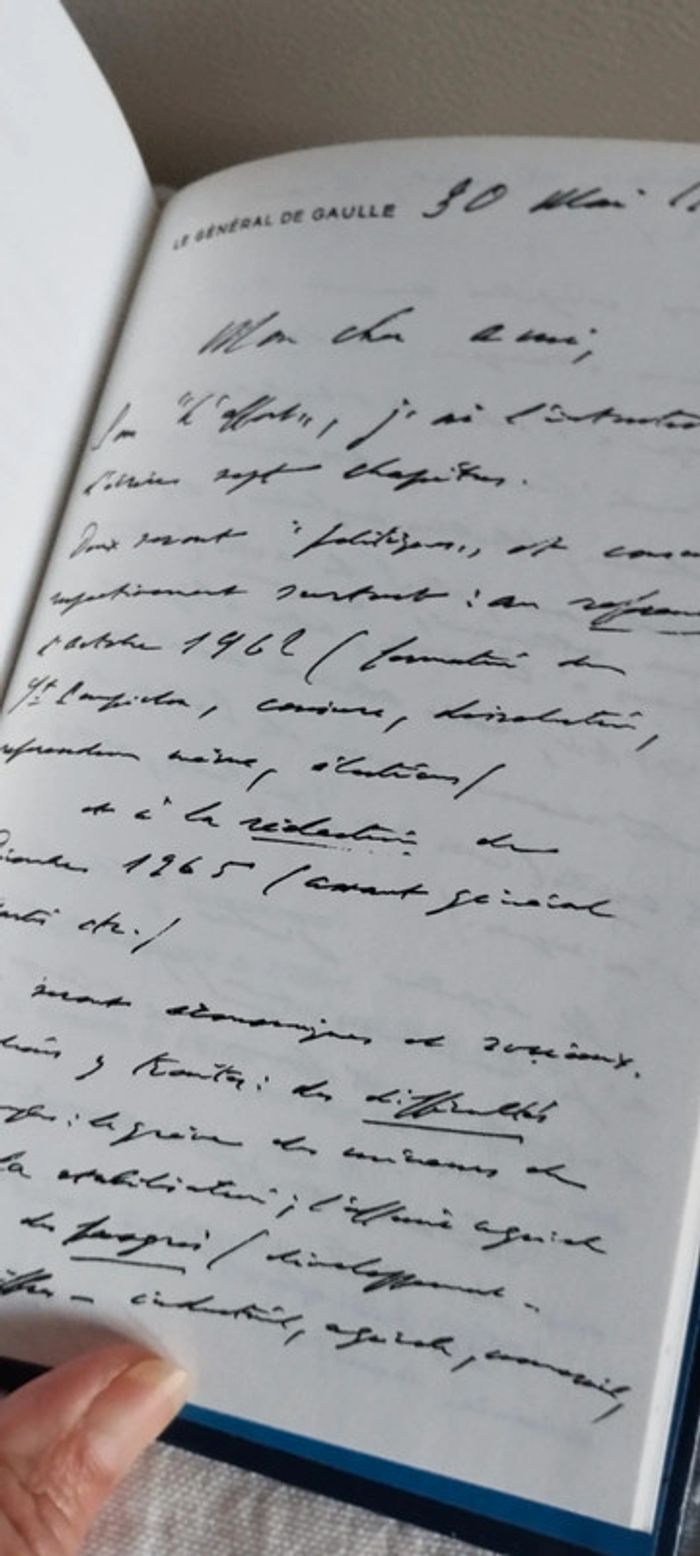 LE GÉNÉRAL DE GAULLE 30 Mai
Mon cher ami,
"L'effort", j'ai l'intention
d'écrire sept chapitres.
Deux seront "politiques", et
respectivement surtout : au
d'octobre 1962 (formation du
Gt Pompidou, censure, dissolution,
referendum même, élections)
et à la réélection de
Décembre 1965 (avant général
etc.)
seront économiques et sociaux.
y traiter : des difficultés
: la grève des mineurs de
la stabilisation ; l'affaire agricole
des progrès (développement -
- industriel, agricole, commercial,